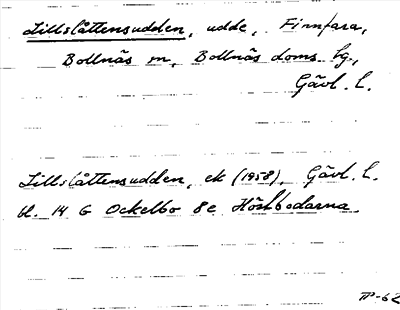 Lillslåttensudden, udde, Finnfara,
Bollnäs sn, Bollnäs doms. hg.,
Gävl. l.
Lillslåttensudden, ek (1958), Gävl. l.
bl. 14 G Ockelbo 8e Höstbodarna.